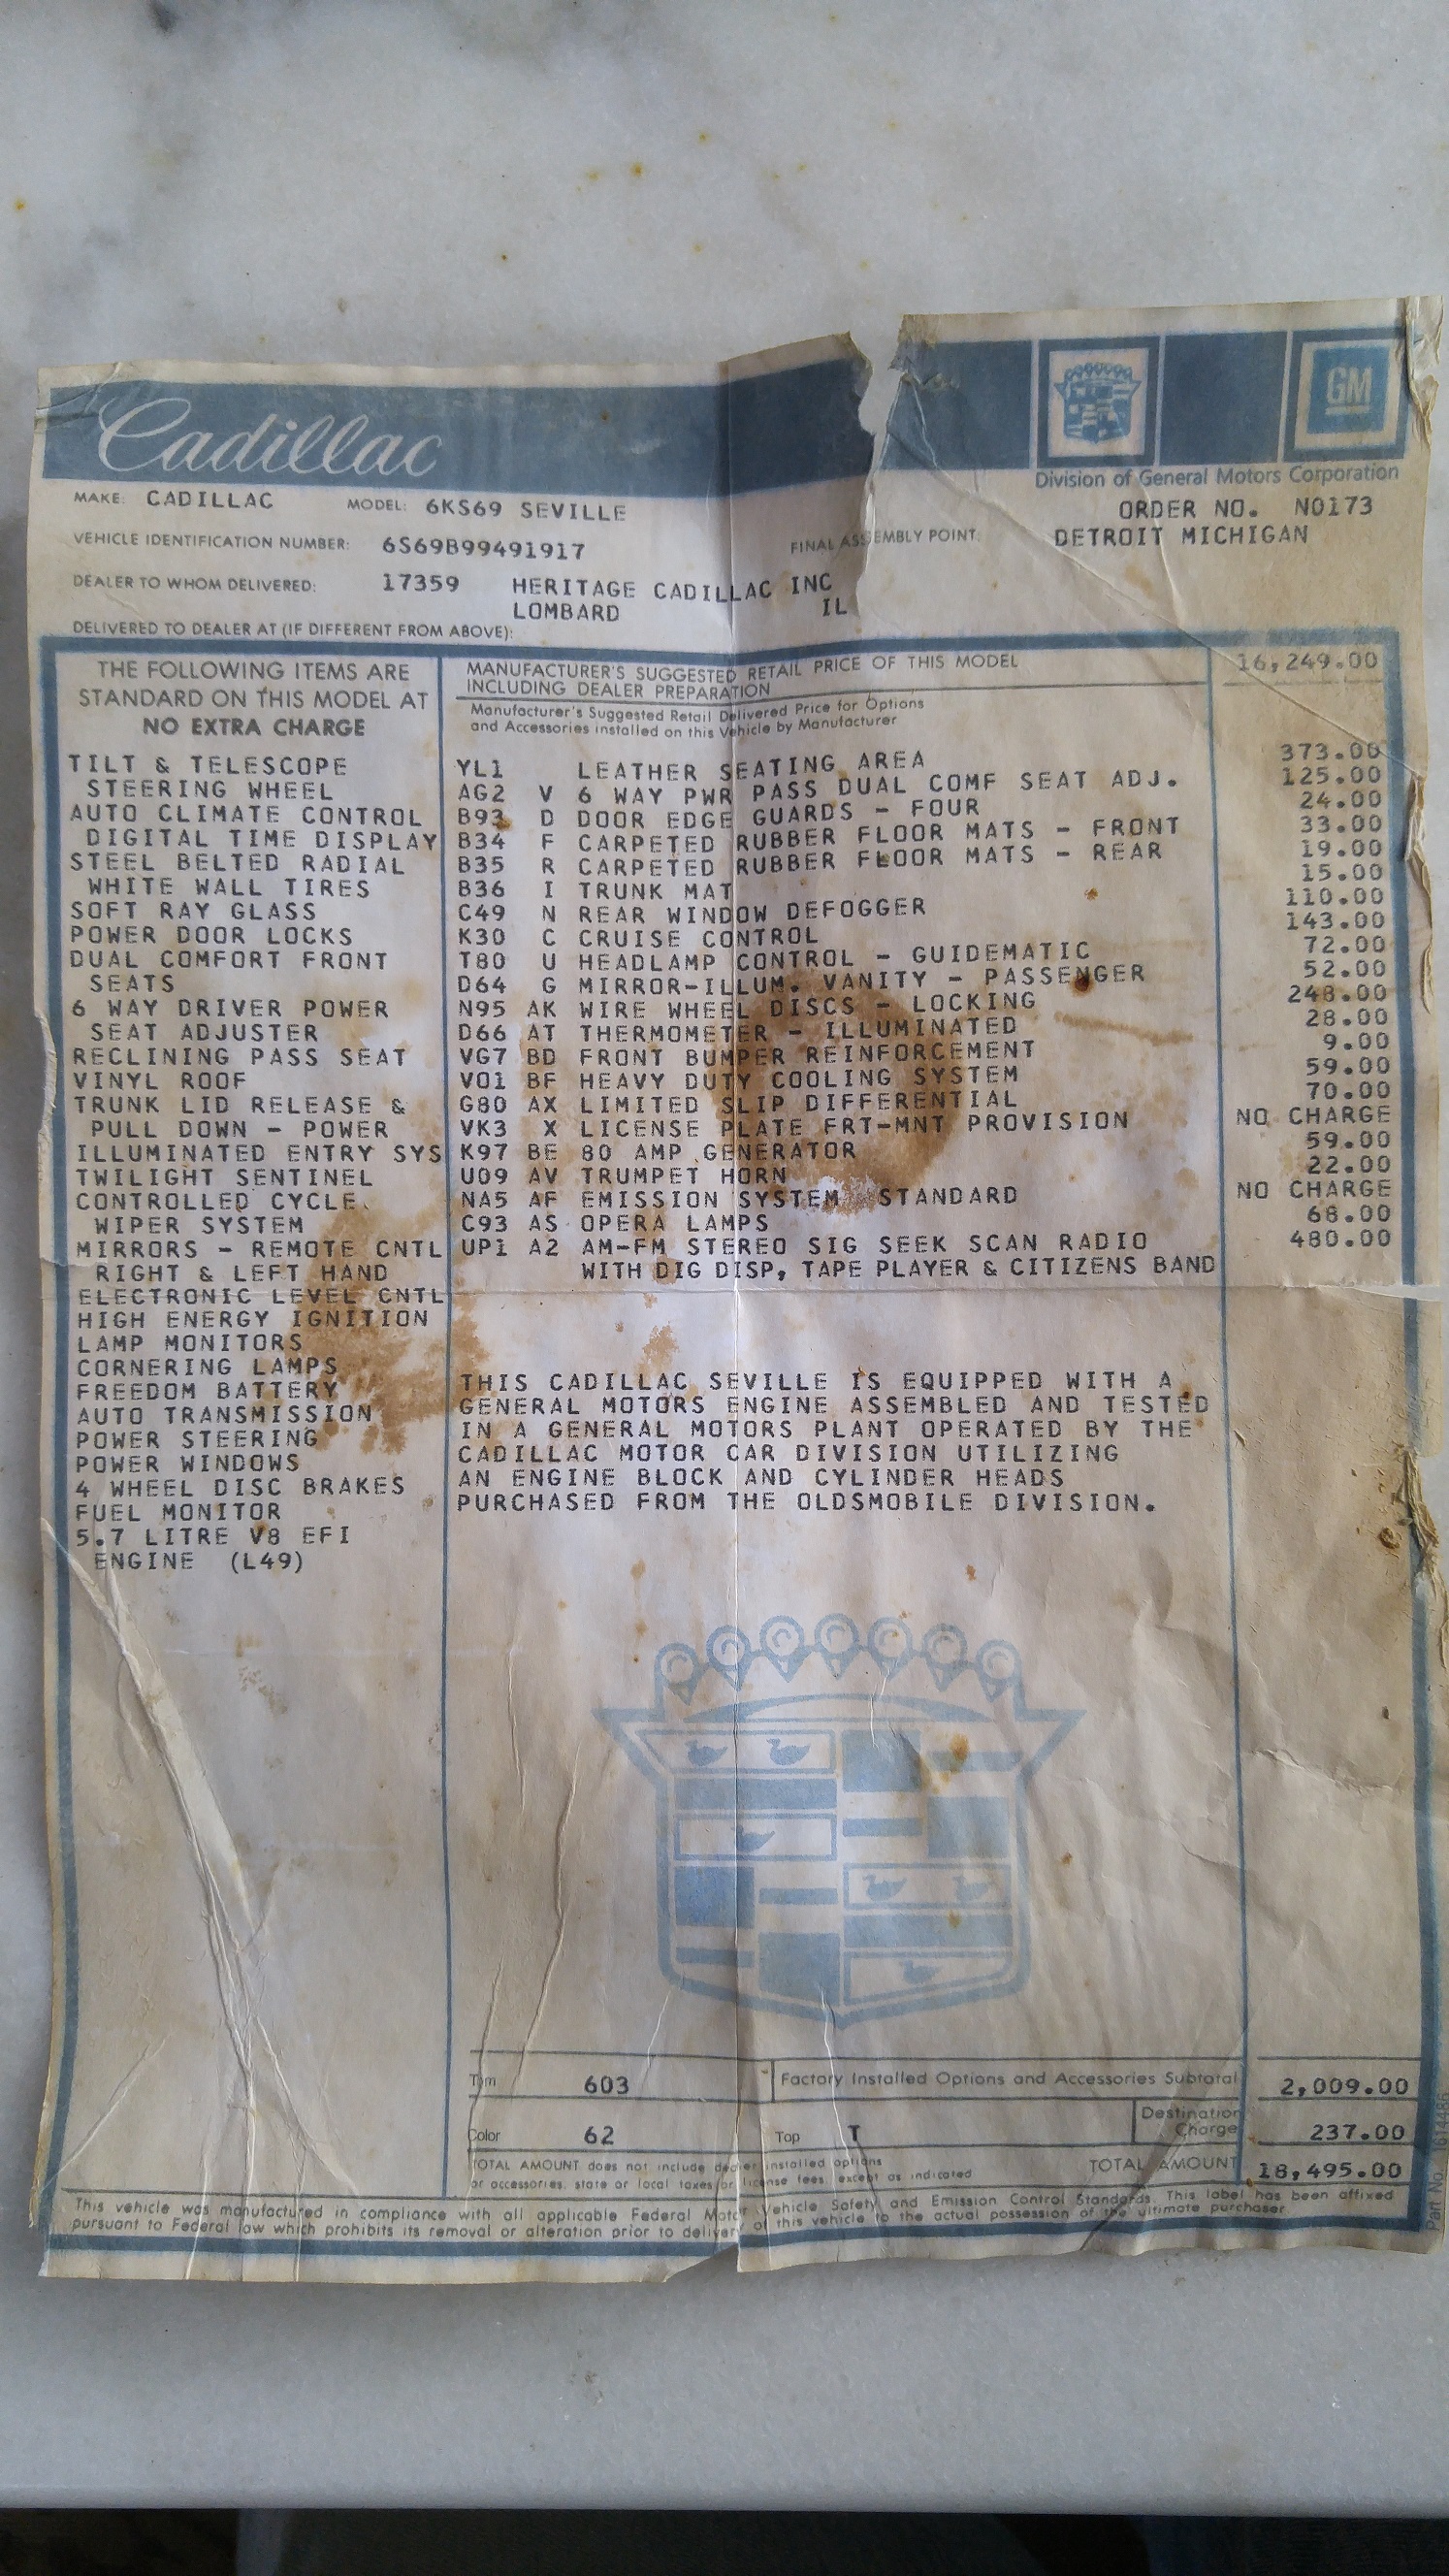 Cadillac
GM
Division of General Motors Corporation
MAKE: CADILLAC MODEL: 6KS69 SEVILLE ORDER NO. N0173
VEHICLE IDENTIFICATION NUMBER: 6S69B99491917 FINAL ASSEMBLY POINT: DETROIT MICHIGAN
DEALER TO WHOM DELIVERED: 17359 HERITAGE CADILLAC INC
LOMBARD IL
DELIVERED TO DEALER AT (IF DIFFERENT FROM ABOVE):
THE FOLLOWING ITEMS ARE
STANDARD ON THIS MODEL AT
NO EXTRA CHARGE
TILT & TELESCOPE
STEERING WHEEL
AUTO CLIMATE CONTROL
DIGITAL TIME DISPLAY
STEEL BELTED RADIAL
WHITE WALL TIRES
SOFT RAY GLASS
POWER DOOR LOCKS
DUAL COMFORT FRONT
SEATS
6 WAY DRIVER POWER
SEAT ADJUSTER
RECLINING PASS SEAT
VINYL ROOF
TRUNK LID RELEASE &
PULL DOWN - POWER
ILLUMINATED ENTRY SYS
TWILIGHT SENTINEL
CONTROLLED CYCLE
WIPER SYSTEM
MIRRORS - REMOTE CNTL
RIGHT & LEFT HAND
ELECTRONIC LEVEL CNTL
HIGH ENERGY IGNITION
LAMP MONITORS
CORNERING LAMPS
FREEDOM BATTERY
AUTO TRANSMISSION
POWER STEERING
POWER WINDOWS
4 WHEEL DISC BRAKES
FUEL MONITOR
5.7 LITRE V8 EFI
ENGINE (L49)
MANUFACTURER'S SUGGESTED RETAIL PRICE OF THIS MODEL 16,249.00
INCLUDING DEALER PREPARATION
Manufacturer's Suggested Retail Delivered Price for Options
and Accessories installed on this Vehicle by Manufacturer
YL1 LEATHER SEATING AREA 373.00
AG2 V 6 WAY PWR PASS DUAL COMF SEAT ADJ. 125.00
B93 D DOOR EDGE GUARDS - FOUR 24.00
B34 F CARPETED RUBBER FLOOR MATS - FRONT 33.00
B35 R CARPETED RUBBER FLOOR MATS - REAR 19.00
B36 I TRUNK MAT 15.00
C49 N REAR WINDOW DEFOGGER 110.00
K30 C CRUISE CONTROL 143.00
T80 U HEADLAMP CONTROL - GUIDEMATIC 72.00
D64 G MIRROR-ILLUM. VANITY - PASSENGER 52.00
N95 AK WIRE WHEEL DISCS - LOCKING 248.00
D66 AT THERMOMETER - ILLUMINATED 28.00
VG7 BD FRONT BUMPER REINFORCEMENT 9.00
V01 BF HEAVY DUTY COOLING SYSTEM 59.00
G80 AX LIMITED SLIP DIFFERENTIAL 70.00
VK3 X LICENSE PLATE FRT-MNT PROVISION NO CHARGE
K97 BE 80 AMP GENERATOR 59.00
U09 AV TRUMPET HORN 22.00
NA5 AF EMISSION SYSTEM STANDARD NO CHARGE
C93 AS OPERA LAMPS 68.00
UP1 A2 AM-FM STEREO SIG SEEK SCAN RADIO 480.00
WITH DIG DISP, TAPE PLAYER & CITIZENS BAND
THIS CADILLAC SEVILLE IS EQUIPPED WITH A
GENERAL MOTORS ENGINE ASSEMBLED AND TESTED
IN A GENERAL MOTORS PLANT OPERATED BY THE
CADILLAC MOTOR CAR DIVISION UTILIZING
AN ENGINE BLOCK AND CYLINDER HEADS
PURCHASED FROM THE OLDSMOBILE DIVISION.
Trim 603 Factory Installed Options and Accessories Subtotal 2,009.00
Color 62 Top T Destination Charge 237.00
TOTAL AMOUNT does not include dealer installed options
or accessories, state or local taxes or license fees, except as indicated
TOTAL AMOUNT 18,495.00
This vehicle was manufactured in compliance with all applicable Federal Motor Vehicle Safety and Emission Control Standards. This label has been affixed
pursuant to Federal law which prohibits its removal or alteration prior to delivery of this vehicle to the actual possession of the ultimate purchaser.
Part No.